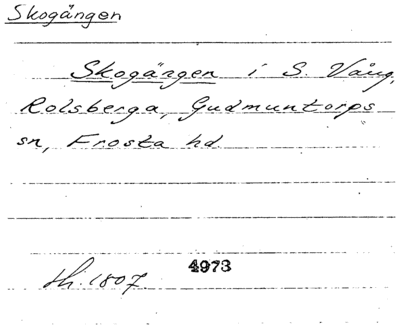 Skogängen
Skogängen i S. Vång,
Rolsberga, Gudmuntorps
sn, Frosta hd
sh. 1807.
4973